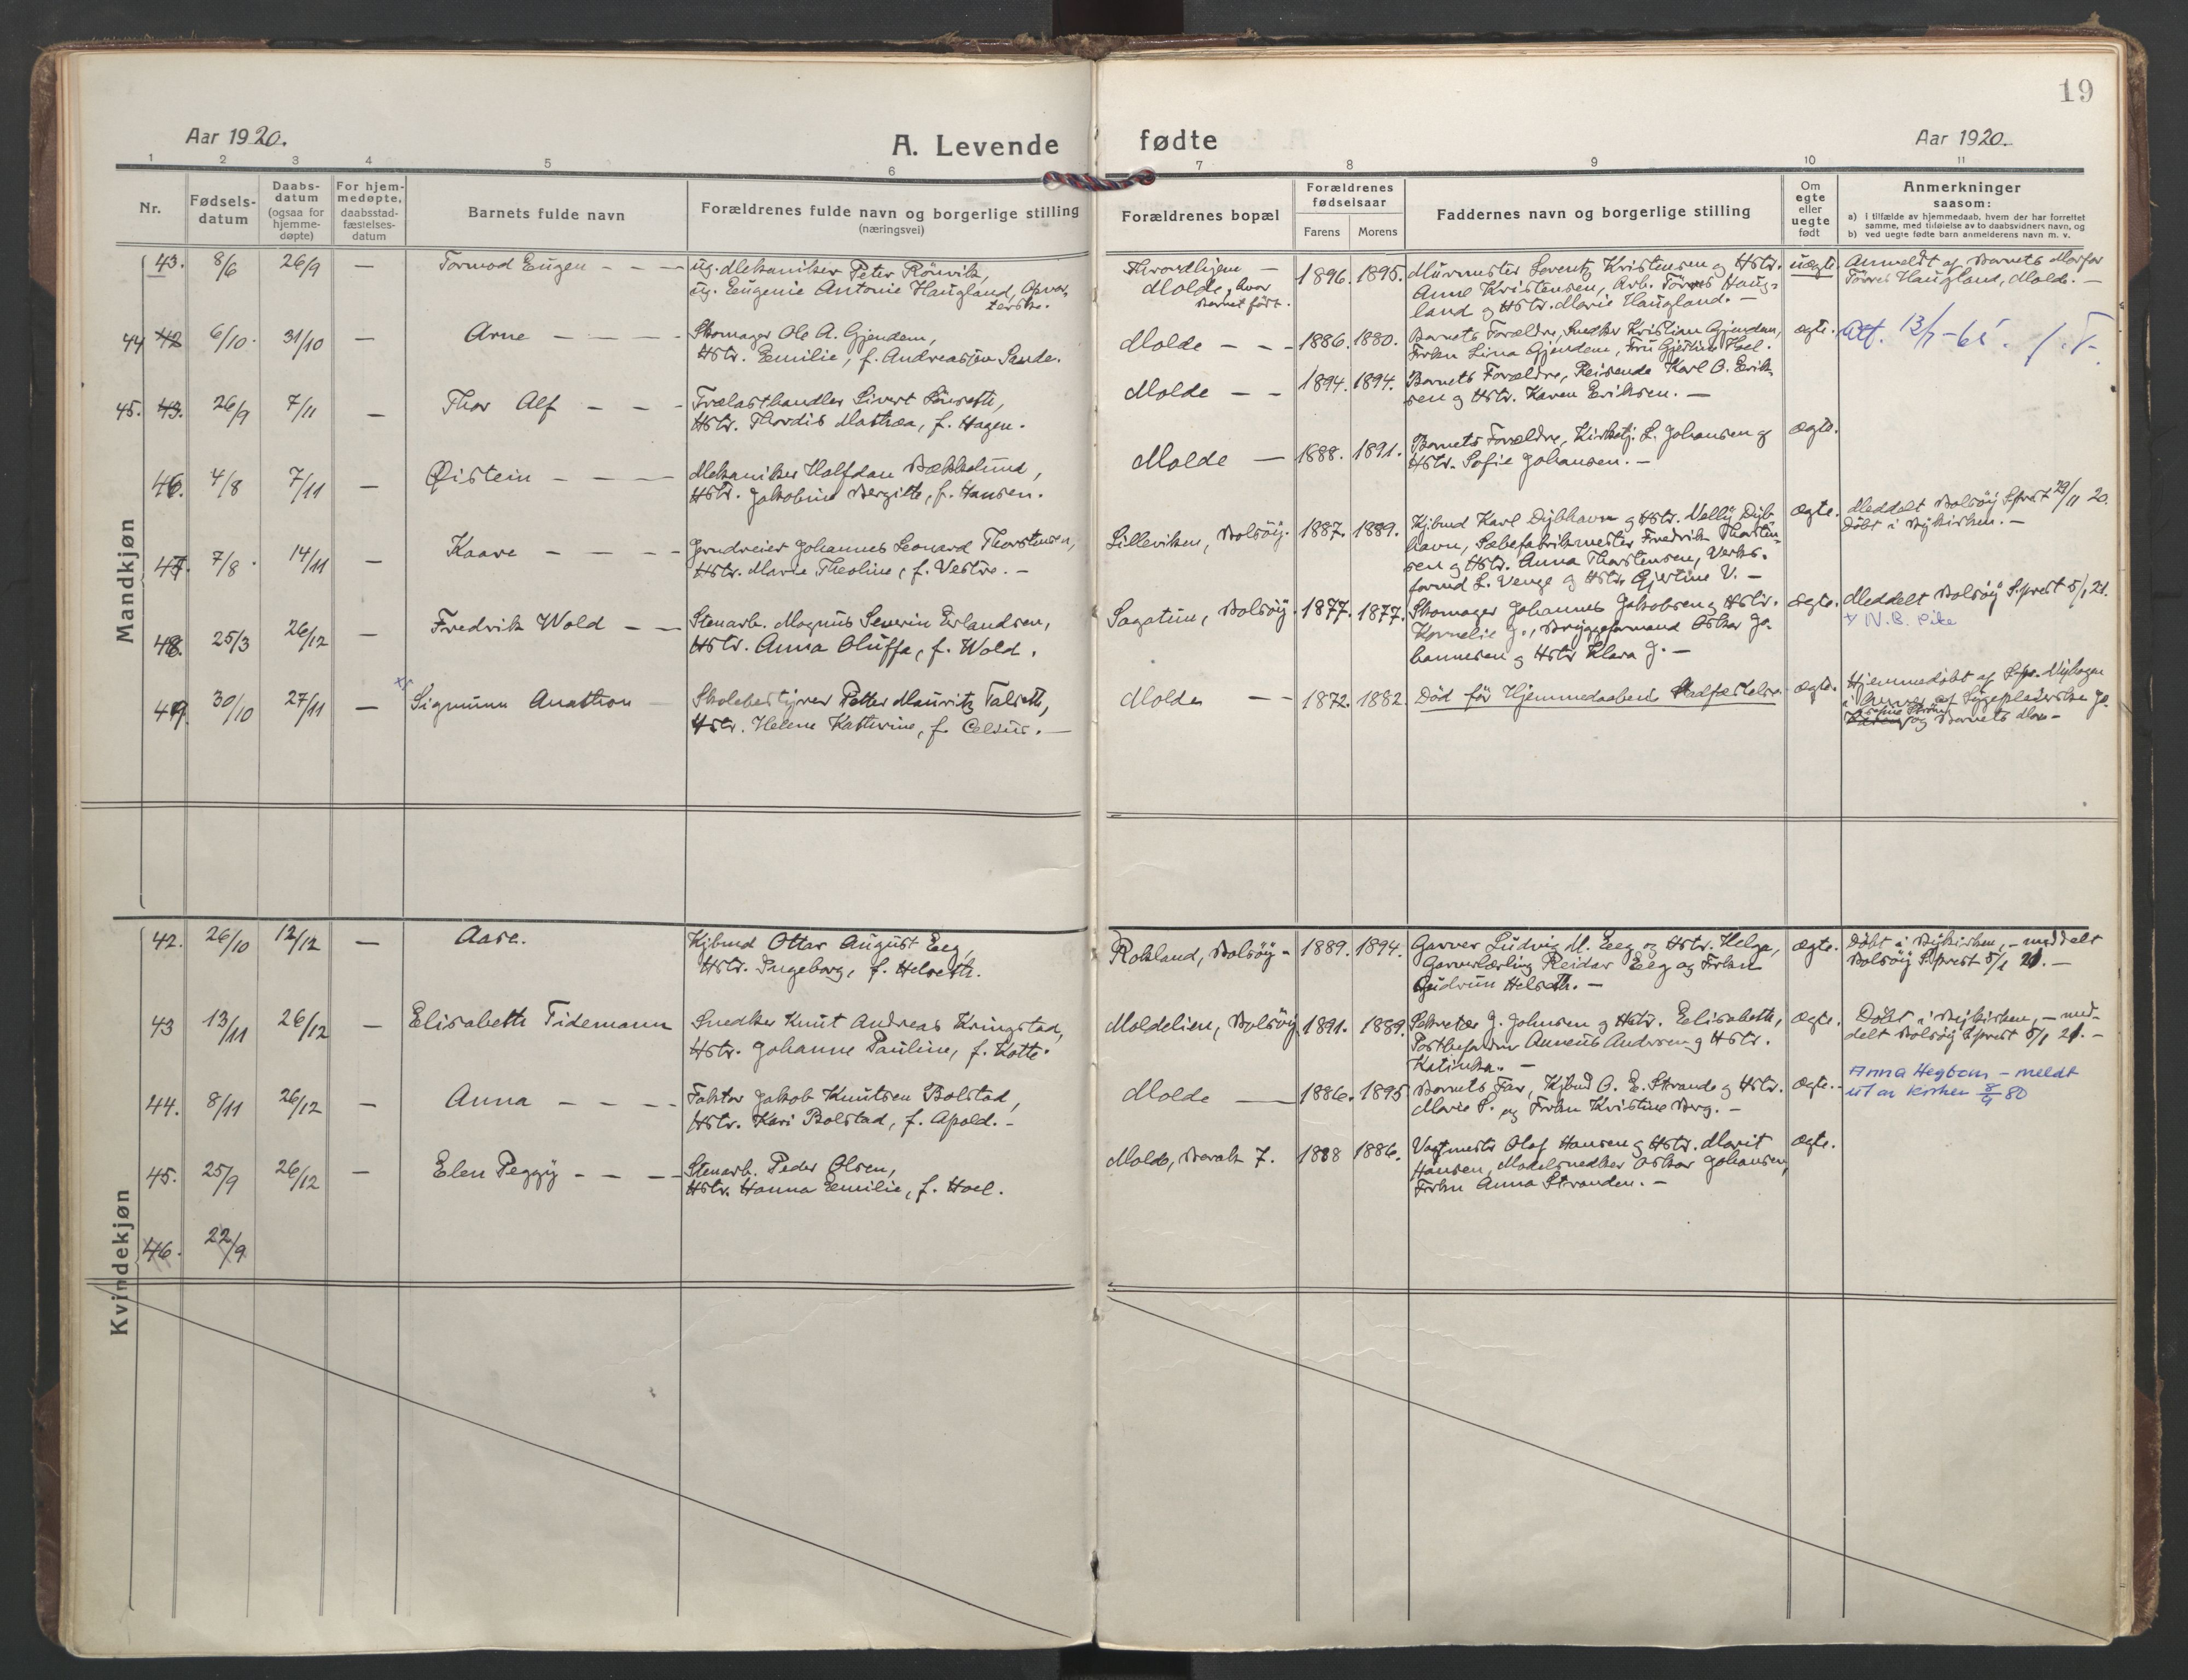 19
Aar 1920.
A. Levende
fødte
Aar 1920.
1
2
3
4
5
6
7
8
9
10
11
Nr.
Fødsels-
datum
Daabs-
datum
(ogsaa for
hjemme-
døpte)
For hjem-
medøpte,
daabsstad-
fæstelses-
datum
Barnets fulde navn
Forældrenes fulde navn og borgerlige stilling
(næringsvei)
Forældrenes bopæl
Forældrenes
fødselsaar
Farens
Morens
Faddernes navn og borgerlige stilling
Om
egte
eller
uegte
født
Anmerkninger
saasom:
a) i tilfælde av hjemmedaab, hvem der har forrettet
samme, med tilføielse av to daabsvidners navn, og
b) ved uegte fødte barn anmelderens navn m. v.
Mandkjøn
43. 8/6 26/9 —
Tormod Eugen - - -
ug. Mekaniker Peter Rönvik,
ug. Eugenie Antonie Haugland, Opvar-
terske.
Throndhjem —
Molde, hvor
Barnet født.
1896. 1895.
Murmester Lorentz Kristensen og Hstr.
Anne Kristensen, Arb. Törres Haug-
land og Hstr. Marie Haugland. —
uægte.
Anmeldt af Barnets Morfar
Törres Haugland, Molde. —
44 42 6/10. 31/10 —
Arne — — — -
Skomager Ole A. Gjendem,
Hstr. Emilie, f. Andreasjon Sande.
Molde - - -
1886. 1880.
Barnets Forældre, Snedker Kristian Gjendem,
Frkn Lina Gjendem, Fru Gjertine Hoel.
ægte.
Att. 13/7-65.
45. 43. 26/9 7/11 —
Thor Alf - - -
Trælasthandler Sivert
Hstr. Thordis Mathea, f. Hagen.
Molde - -
1894. 1894.
Barnets Forældre, Reisende Karl O. Erik-
sen og Hstr. Karen Eriksen. —
46. 4/8 7/11 —
Øistein - - - -
Mekaniker Halfdan Bækkelund,
Hstr. Jakobine Bergitte, f. Hansen.
Molde —
1888. 1891.
Barnets Forældre, Kirketj. L. Johansen og
Hstr. Sofie Johansen. —
ægte.
47. 7/8. 14/11 —
Kaare - - - -
Grndreier Johannes Leonard Thorstensen,
Hstr. Marie Theoline, f. Vestre. —
Lilleviken, Bolsöy.
1887. 1889.
Kjbmd Karl Dybhavn og Hstr. Nelly Dyb-
havn, Sæbefabrikmester Fredrik Thorsten-
sen og Hstr. Anna Thorstensen, Verks-
formd L. Venge og Hstr. Gjertine V. —
ægte.
Meddelt Bolsöy S.prest 29/11 20.
Döbt i Bykirken. —
48. 25/3 26/12 —
Fredrik Wold - -
Stenarb. Magnus Severin Erlandsen,
Hstr. Anna Oluffa, f. Wold.
Sagatun, Bolsöy.
1877. 1877.
Skomager Johannes Jakobsen og Hstr.
Kornelie J., Bryggeformand Oskar Jo-
hannesen og Hstr Klara J. —
ægte.
Meddelt Bolsöy S.prest 5/1 21.
N.B. Pike
49. 30/10 27/11 —
Sigmunn Anathon
Skolebestyrer Petter Mauritz Talseth,
Hstr. Helene Kathrine, f. Celius. —
Molde - -
1872. 1882.
Död för Hjemmedaabens Stadfæstelse
ægte.
Hjemmedöbt af S.pr. Nyhagen
i Nærvær af Sygepleierske Jo-
og Barnets Mor —
Kvindekjøn
42. 26/10 12/12 —
Aase.
Kjbmd Ottar August Eeg,
Hstr. Ingeborg, f. Helseth.
Rokland, Bolsöy -
1889. 1894.
Garver Ludvig M. Eeg og Hstr. Helga,
Garverlærling Reidar Eeg og Frkn
Gudrun Helseth. —
ægte.
Döbt i Bykirken, — meddelt
Bolsöy S.prest 5/1 21. —
43 13/11 26/12 —
Elisabeth Tidemann
Snedker Knut Andreas Kringstad,
Hstr. Johanne Pauline, f. Kotte.
Moldelien, Bolsöy
1891. 1889.
Sekretær J. Johnsen og Hstr. Elisabeth,
Annæus Andersen og Hstr.
Katinka. —
ægte.
Döbt i Bykirken, — med-
delt Bolsöy S.prest 5/1 21. —
44. 8/11 26/12 —
Anna - - - -
Faktor Jakob Knutsen Bolstad,
Hstr. Kari Bolstad, f. Apold. -
Molde —
1886. 1895
Barnets Far, Kjbmd O. E. Strande og Hstr.
Marie S. og Frkn Kristine Berg. —
ægte.-
Anna Hegbom — meldt
ut av kirken 8/9 80
45. 25/9 26/12 —
Elen Peggy - - -
Stenarb. Peder Olsen,
Hstr. Hanna Emilie, f. Hoel.
Molde, Barak 7.
1888 1886.
Vagtmester Olaf Hansen og Hstr. Marit
Hansen, Modelsnedker Oskar Johansen,
Frkn Anna Stranden. —
ægte.
46. 22/9